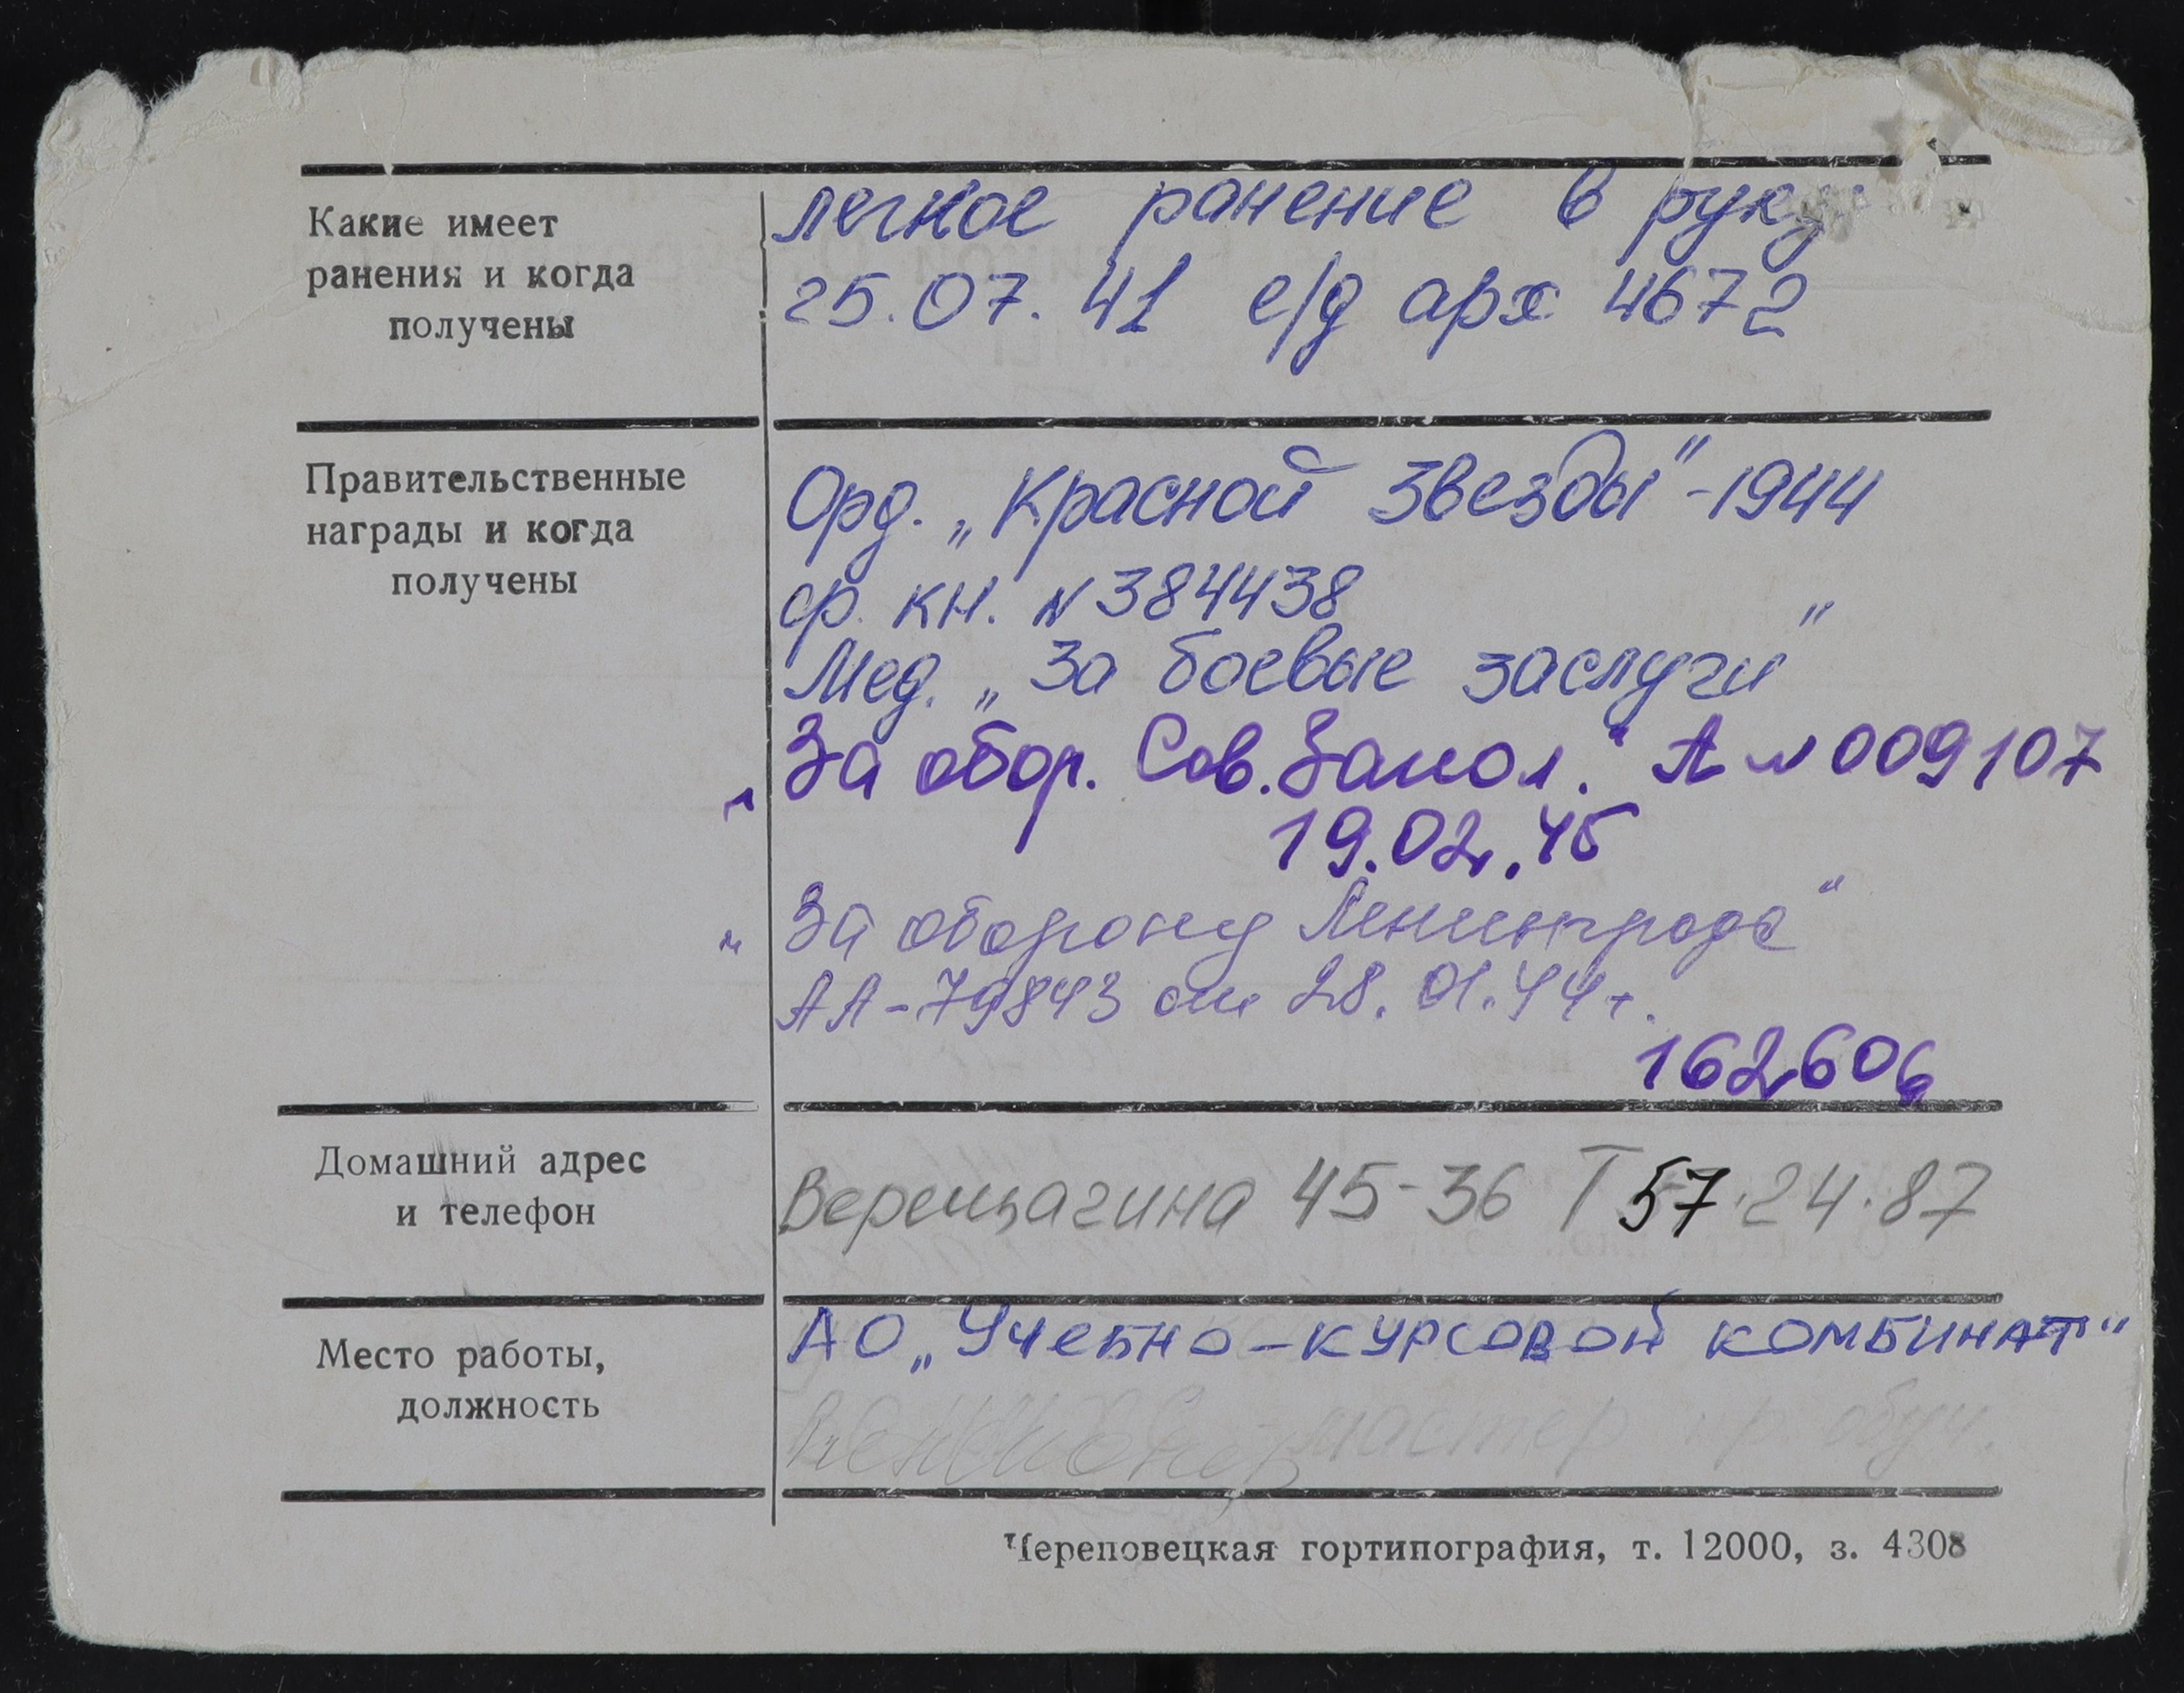 Какие имеет
ранения и когда
получены
легкое ранение в руку
25.07.41 с/д арх 4672
Правительственные
награды и когда
получены
Орд. „Красной Звезды" -1944
ор. кн. N 384438
Мед. „За боевые заслуги"
„За обор. Сов. Запол." А N 009107
19.02.45
„За оборону Ленинграда"
АЛ-79843 от 28.01.44г.
162606
Домашний адрес
и телефон
Верещагина 45-36 Т 57.24.87
Место работы,
должность
АО „Учебно-курсовой комбинат"
пенсионер мастер пр. обуч.
Череповецкая гортипография, т. 12000, з. 4308